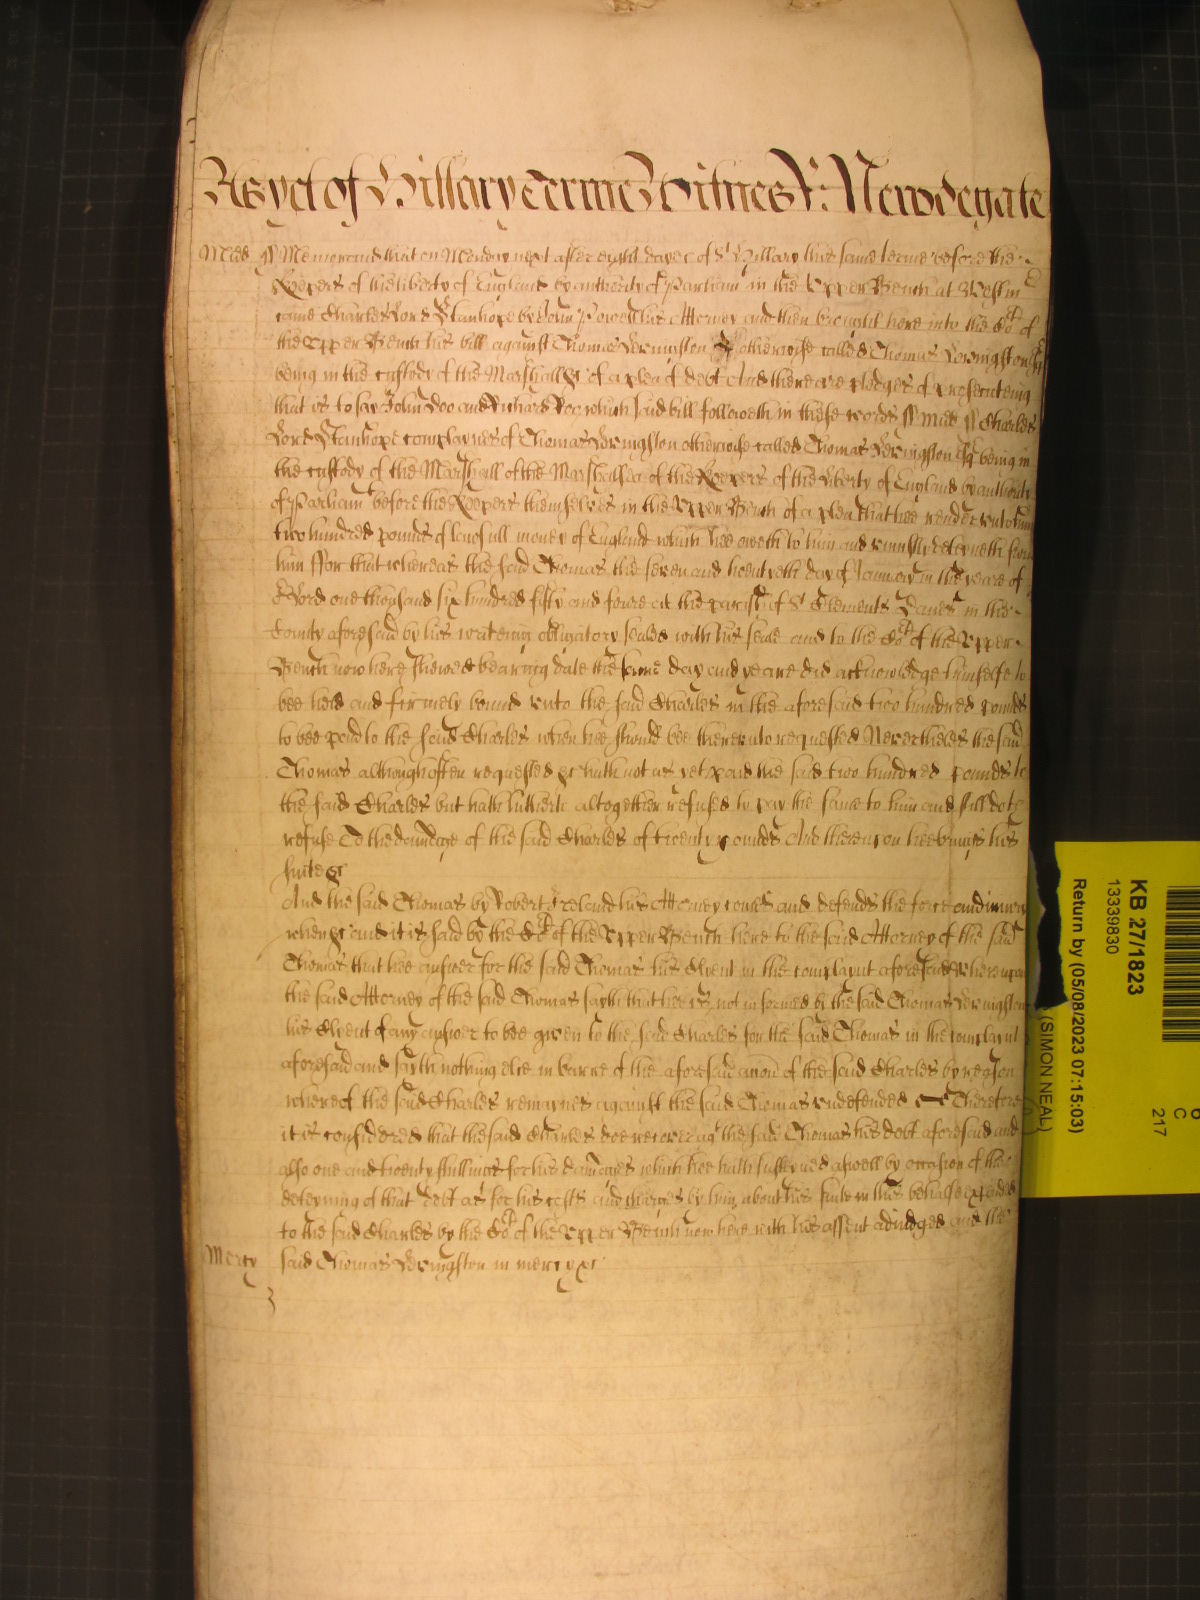 As yet of Hillary Terme Witnes R: Newdegate
Midd ss Memorand that on Monday next after eight dayes of St Hillary this same terme before the
Keepers of the liberty of England by authority of Parliam in the Upper Bench at Westm
came Charles Lord Stanhope by John Powell his Attorney and then brought here into the Co.rt of
the Upper Bench his bill against Thomas Vernington otherwise called Thomas Vernington Esq
being in the custody of the Marshall &c of a plea of debt And there are pledges of prosecuteing
that is to say John Doo and Richard Roo which said bill followeth in these words ss Midd ss Charles
Lord Stanhope complaynes of Thomas Vernington otherwise called Thomas Vernington Esq being in
the custody of the Marshall of the Marshallsea of the Keepers of the liberty of England by authority
of Parliam.t before the Keepers themselves in the Upper Bench of a plea that hee render unto him
two hundred pounds of lawfull money of England which hee oweth to him and uniustly deteyneth from
him ffor that whereas the said Thomas the seven and twentyeth day of January in the yeare of
Lord one thousand six hundred fifty and foure at the parish of St Clements Danes in the
County aforesaid by his writeing obligatory sealed with his seale and to the Co.rt of the Upper
Bench now here shewed beareing date the same day and yeare did acknowledge himselfe to
bee held and firmely bound unto the said Charles in the aforesaid two hundred pounds
to bee payd to the said Charles when hee should bee thereunto requested Nevertheles the said
Thomas although often requested &c hath not as yet payd the said two hundred pounds to
the said Charles but hath hitherto altogether refused to pay the same to him and still doth
refuse To the damage of the said Charles of twenty pounds And thereupon hee brings his
suite &c
And the said Thomas by Robert Ireland his Attorney comes and defends the force and iniury
when &c and it is said by the Co.rt of the Upper Bench here to the said Attorney of the said
Thomas that hee answer for the said Thomas his Clyent in the complaynt aforesaid Whereupon
the said Attorney of the said Thomas sayth that hee is not informed by the said Thomas Vernington
his Clyent of any answer to bee given to the said Charles for the said Thomas in the complaynt
aforesaid and sayth nothing else in barre of the aforesaid accon of the said Charles by reason
whereof the said Charles remaynes against the said Thomas undefended Therefore
it is considered that the said Charles doe recover ag.t the said Thomas his debt aforesaid and
also one and twenty shillings for his damages which hee hath susteyned aswell by occasion of the
deteyning of that debt as for his costs and charges by him about his suite in this behalfe expended
to the said Charles by the Co.rt of the Upper Bench now here with his assent adiudged and the
Mercy said Thomas Vernington in mercy &c
KB 27/1823
13339830
Return by (05/08/2023 07:15:03)
(SIMON NEAL)
C
217